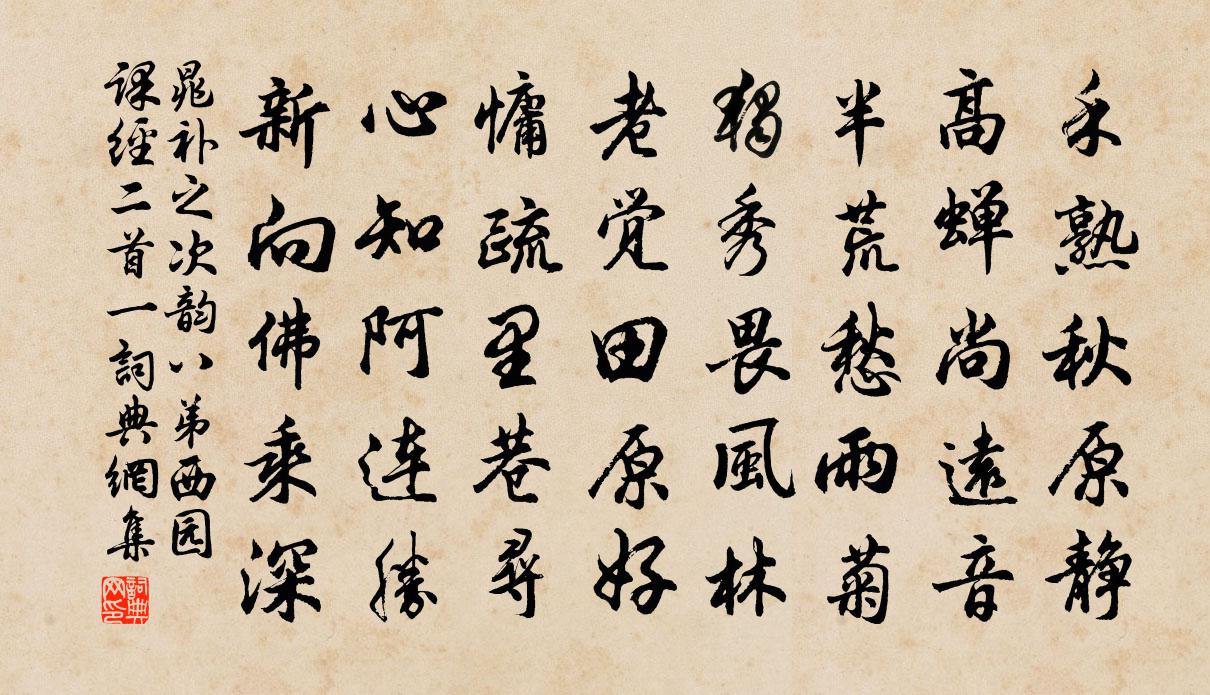 禾熟秋原静
高蝉尚遠音
半荒愁雨菊
獨秀畏風林
老觉田原好
慵疏里巷尋
心知阿连勝
新向佛乘深
晁补之次韵八弟西园
课經二首一詞典網集
詞典网印